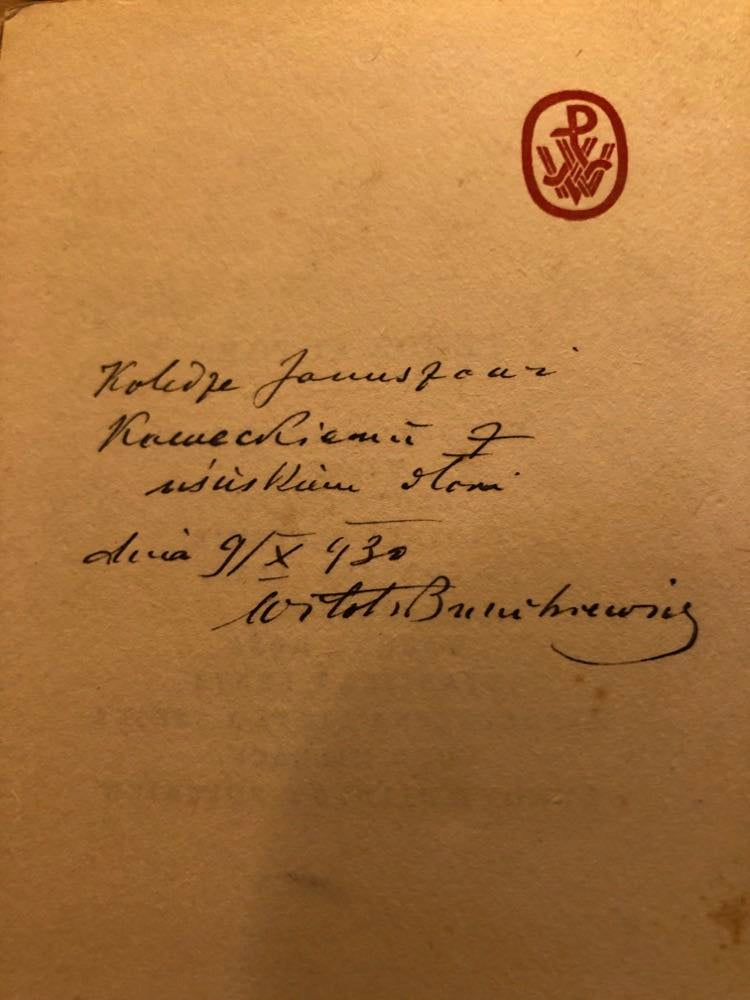 PW
Koledze Januszowi
Kaweckiemu z
uściskiem dłoni
dnia 9/X 930
Witold Bunikiewicz